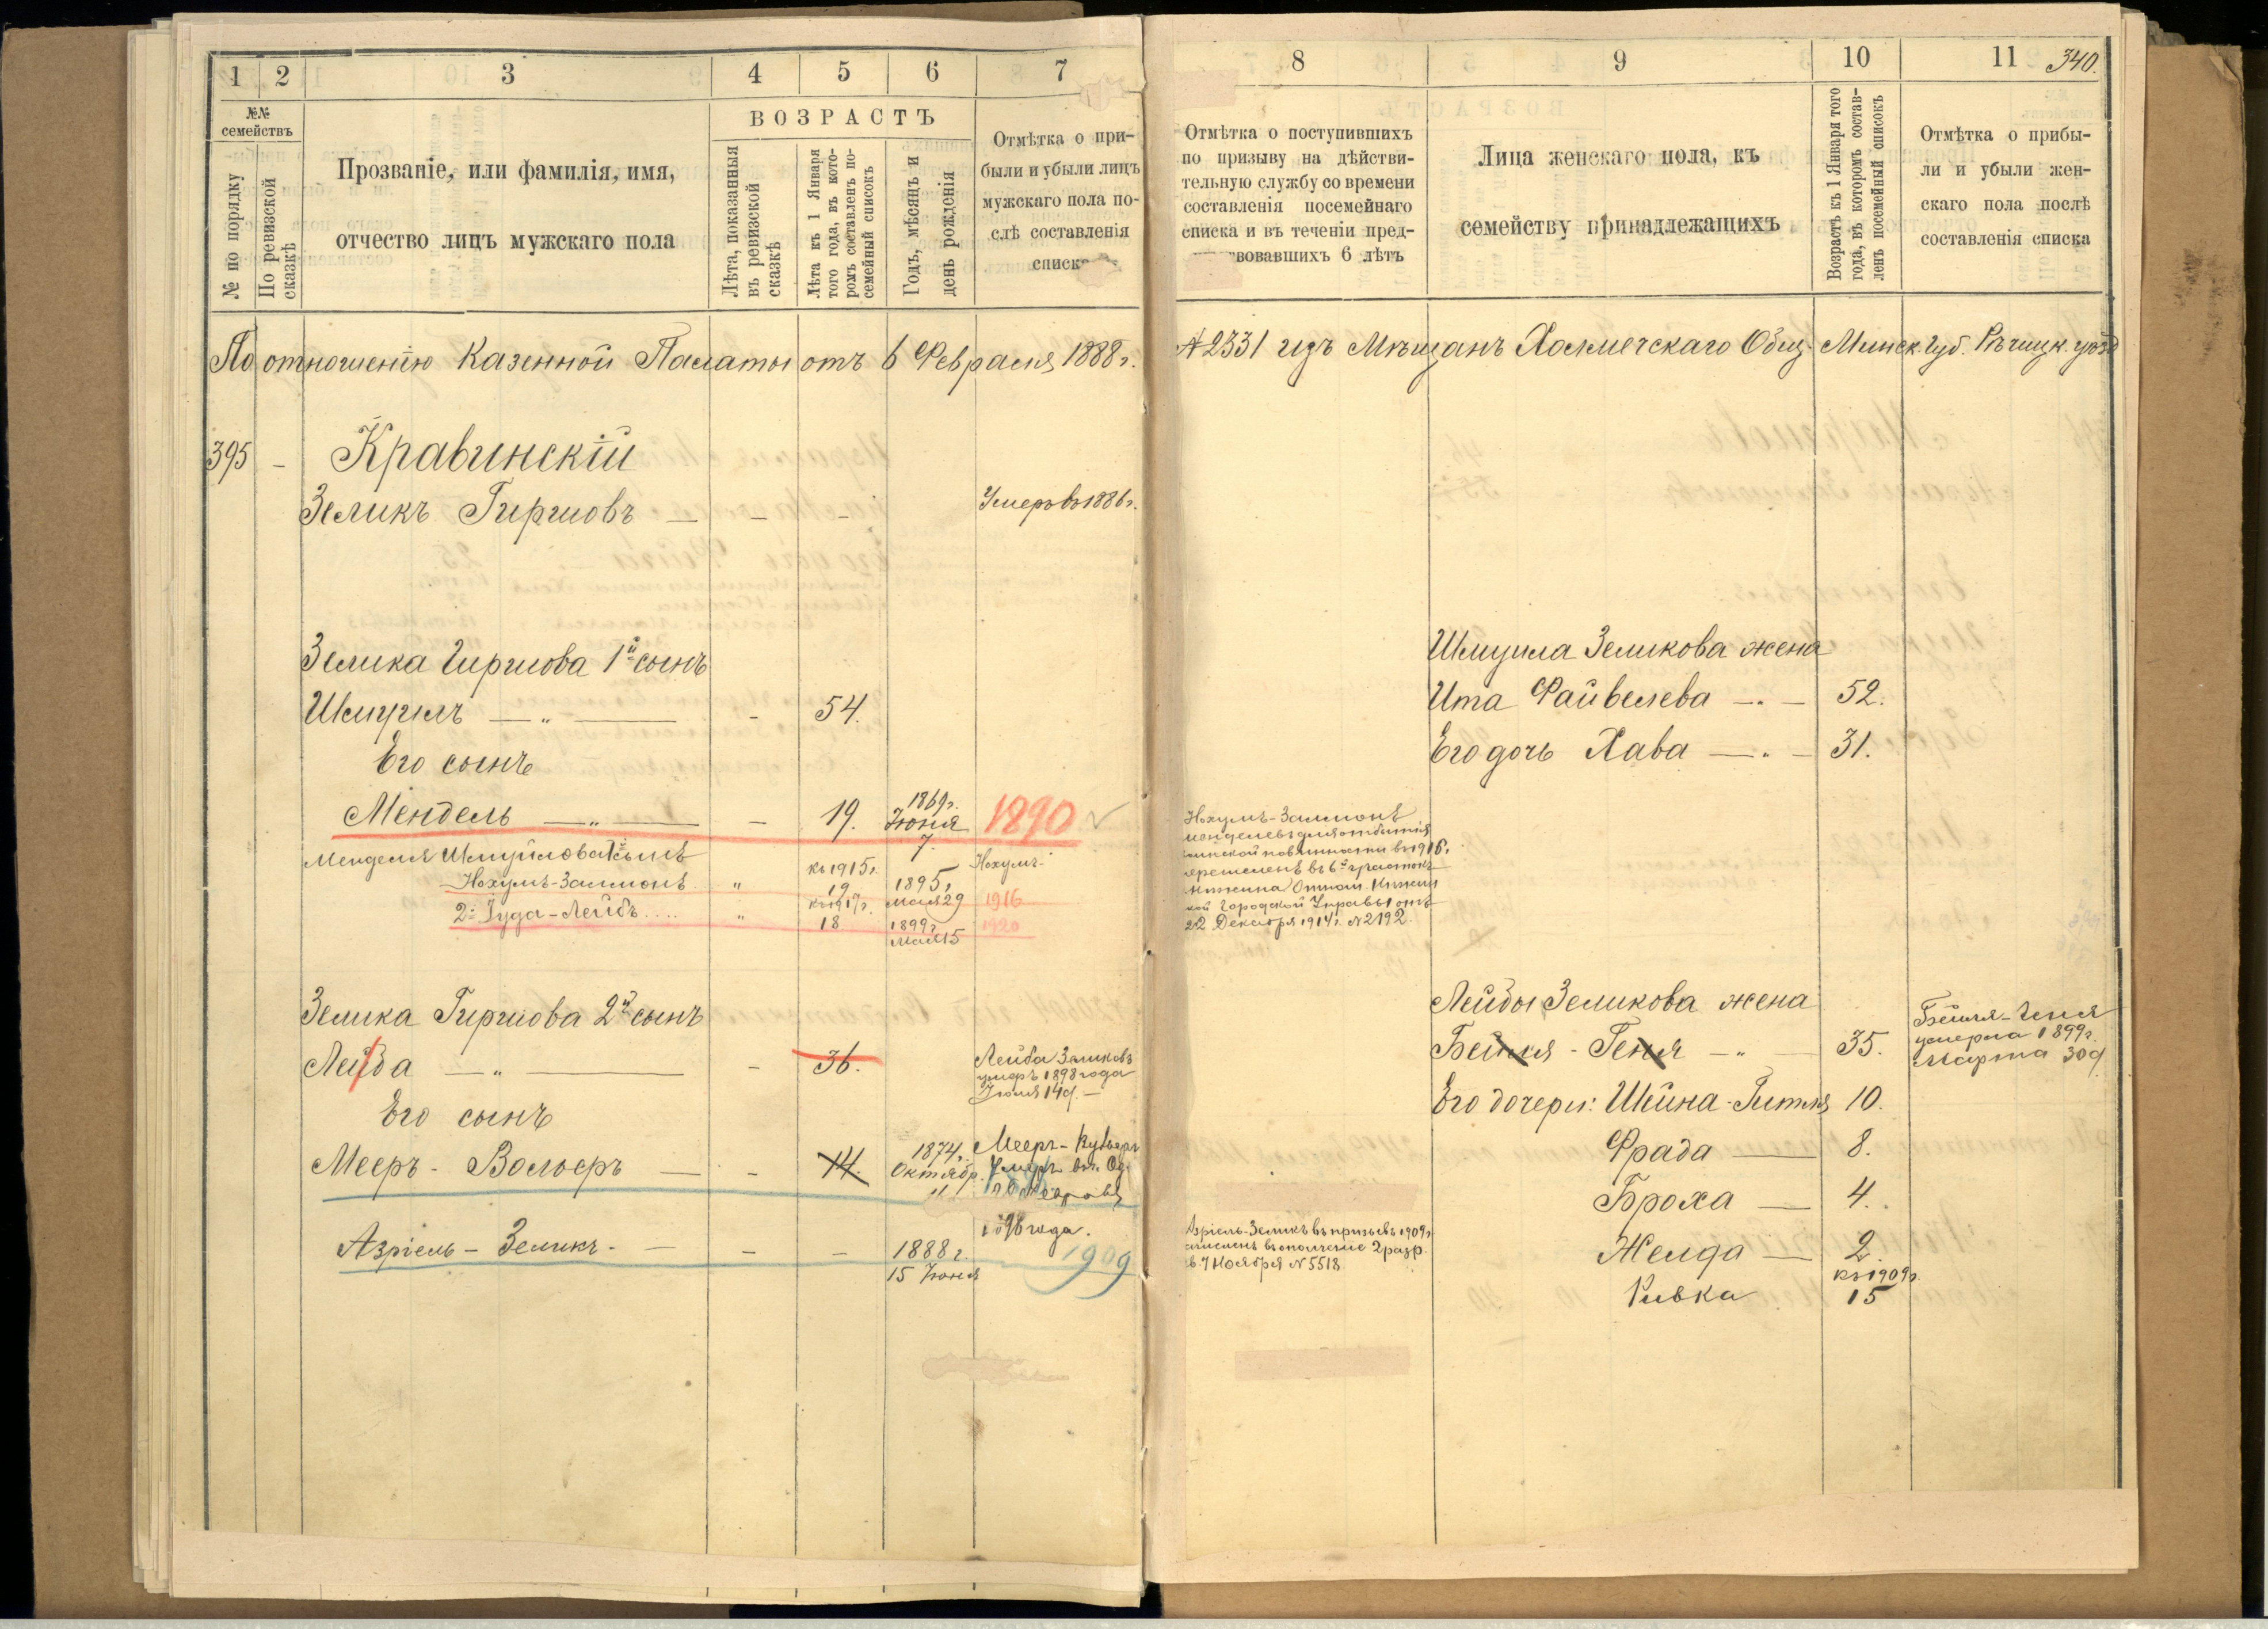 1 2 3 4 5 6 7
№№ семействъ
№ по порядку
По ревизской сказкѣ
Прозваніе, или фамилія, имя,
отчество лицъ мужскаго пола
ВОЗРАСТЪ
Лѣта, показанныя
въ ревизской
сказкѣ
Лѣта къ 1 Января
того года, въ кото-
ромъ составленъ по-
семейный списокъ
Годъ, мѣсяцъ и
день рожденія
Отмѣтка о при-
были и убыли лицъ
мужскаго пола по-
слѣ составленія
списка
По отношенію Казенной Палаты отъ 6 Февраля 1888 г.
395 – Кравинскій
Зеликъ Гиршовъ — – – Умеръ въ 1886 г.
Зелика Гиршова 1й сынъ
Шмуилъ — „ — - 54.
Его сынъ
Мендель — „ — – 19. 1869 г. Іюня 7. 1890
Менделя Шмуйлова 1й сынъ
Нохумъ-Залмонъ „ къ 1915 г. 19 1895 г. Мая 29 1916
Нохумъ
2й Іуда-Лейбъ.... „ къ 1917 г. 18 1899 г. Мая 15 1920
Зелика Гиршова 2й сынъ
Лейба — „ — – 36.
Лейба Зеликовъ
умеръ 1898 года
Іюля 14 д. —
Его сынъ
Мееръ - Вольфъ — - 14. 1874 г. Октябр. 11
Мееръ-
Умеръ
1896 года.
Азріель - Зеликъ - — – – 1888 г. 15 Іюня 1909
8 9 10 11 340.
Отмѣтка о поступившихъ
по призыву на дѣйстви-
тельную службу со времени
составленія посемейнаго
списка и въ теченіи пред-
вовавшихъ 6 лѣтъ
Лица женскаго пола, къ
семейству принадлежащихъ
Возрастъ къ 1 Января того
года, въ которомъ состав-
ленъ посемейный списокъ
Отмѣтка о прибы-
ли и убыли жен-
скаго пола послѣ
составленія списка
№ 2331 изъ Мѣщанъ Холмечскаго Общ. Минск. Губ. Рѣчицк. уѣзд
Шмуила Зеликова жена
Ита Файвелева — . — 52.
Его дочь Хава — . – 31.
Нохумъ-Залмонъ
Менделевъ для отбытія
воинской повинности въ 1916 г.
перечисленъ въ 6й участокъ
Городской Управы отъ
22 Декабря 1914 г. № 2192.
Лейбы Зеликова жена
Бейля - Геня — „ — 35.
Бейля-Геня
умерла 1899 г.
Марта 30 д
Его дочери: Шейна-Гитля 10.
Фрада — 8.
Броха — 4.
Желда — 2.
Ривка къ 1909 г. 15
Азріель-Зеликъ въ призывъ 1909 г
зачисленъ въ ополченіе 2 разр.
Ноября № 5518